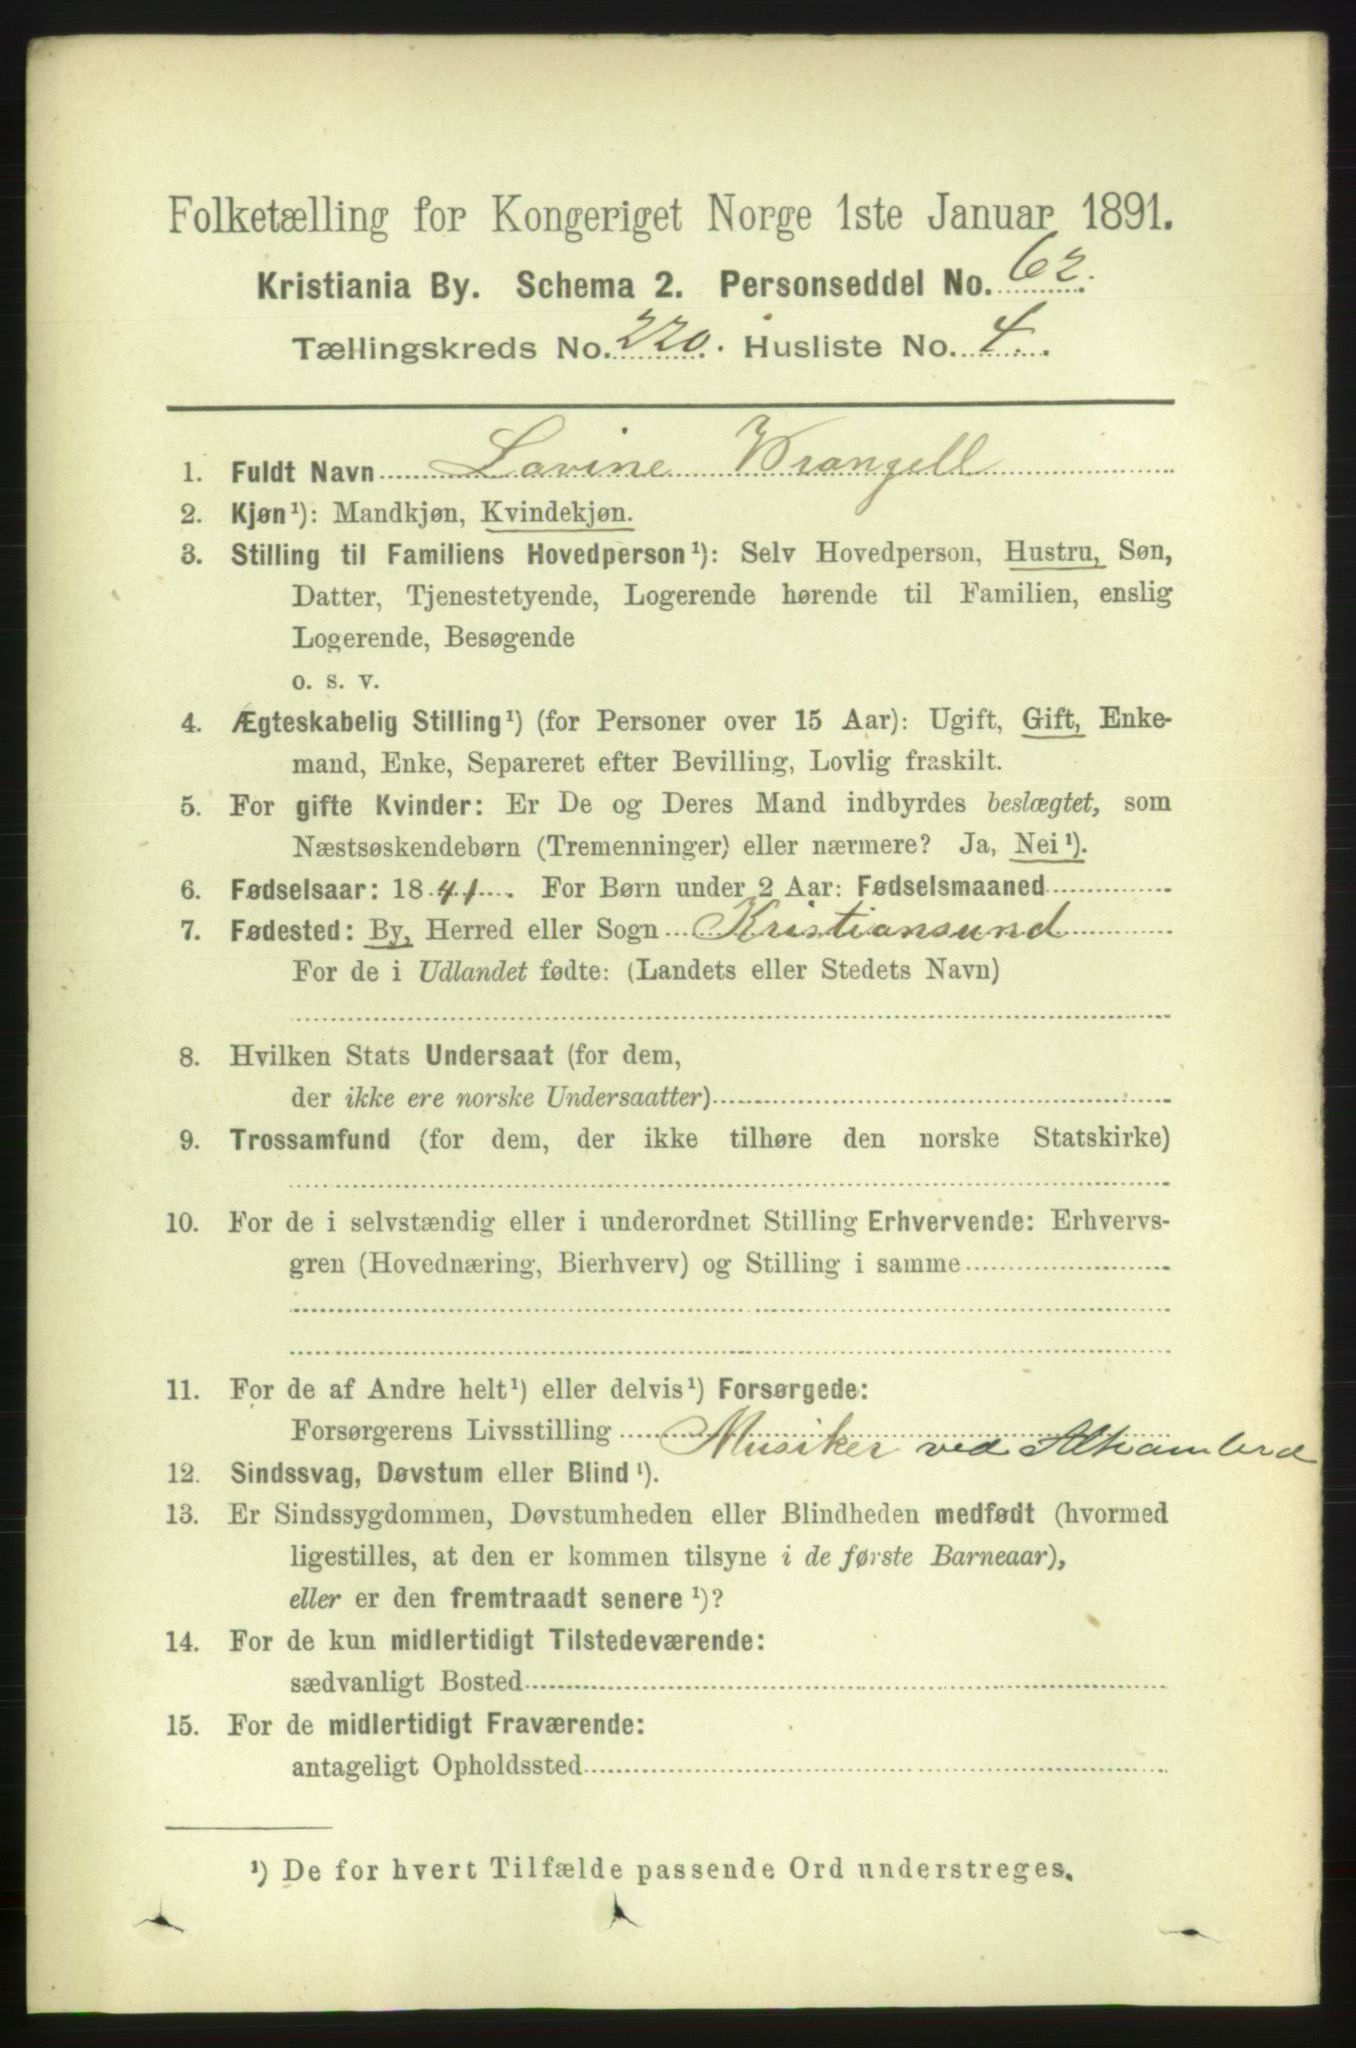 Folketælling for Kongeriget Norge 1ste Januar 1891.
Kristiania By. Schema 2. Personseddel No. 62.
Tællingskreds No. 220. Husliste No. 4.
1. Fuldt Navn Lovine Wrangell
2. Kjøn¹): Mandkjøn, Kvindekjøn.
3. Stilling til Familiens Hovedperson¹): Selv Hovedperson, Hustru, Søn,
Datter, Tjenestetyende, Logerende hørende til Familien, enslig
Logerende, Besøgende
o. s. v.
4. Ægteskabelig Stilling¹) (for Personer over 15 Aar): Ugift, Gift, Enke-
mand, Enke, Separeret efter Bevilling, Lovlig fraskilt.
5. For gifte Kvinder: Er De og Deres Mand indbyrdes beslægtet, som
Næstsøskendebørn (Tremenninger) eller nærmere? Ja, Nei¹).
6. Fødselsaar: 1841. For Børn under 2 Aar: Fødselsmaaned
7. Fødested: By, Herred eller Sogn Kristiansund
For de i Udlandet fødte: (Landets eller Stedets Navn)
8. Hvilken Stats Undersaat (for dem,
der ikke ere norske Undersaatter)
9. Trossamfund (for dem, der ikke tilhøre den norske Statskirke)
10. For de i selvstændig eller i underordnet Stilling Erhvervende: Erhvervs-
gren (Hovednæring, Bierhverv) og Stilling i samme
11. For de af Andre helt¹) eller delvis¹) Forsørgede:
Forsørgerens Livsstilling Musiker ved Alhambra
12. Sindssvag, Døvstum eller Blind¹).
13. Er Sindssygdommen, Døvstumheden eller Blindheden medfødt (hvormed
ligestilles, at den er kommen tilsyne i de første Barneaar),
eller er den fremtraadt senere¹)?
14. For de kun midlertidigt Tilstedeværende:
sædvanligt Bosted
15. For de midlertidigt Fraværende:
antageligt Opholdssted
¹) De for hvert Tilfælde passende Ord understreges.